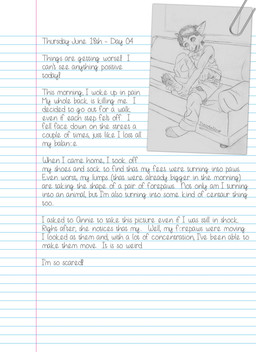 Thursday June 18th - Day 04
Things are getting worse!! I
can't see anything positive
today!!
This morning, I woke up in pain.
My whole back is killing me. I
decided to go out for a walk,
even if each step felt off. I
fell face down on the streets a
couple of times, just like I lost all
my balance.
When I came home, I took off
my shoes and sock to find that my feet were turning into paws.
Even worse, my lumps (that were already bigger in the morning)
are taking the shape of a pair of forepaws. Not only am I turning
into an animal, but I'm also turning into some kind of centaur thing
too...
I asked to Annie to take this picture even if I was still in shock.
Right after, she notices that my... Well, my forepaws were moving.
I looked at them and, with a lot of concentration, I've been able to
make them move. It is so weird.
I'm so scared!!